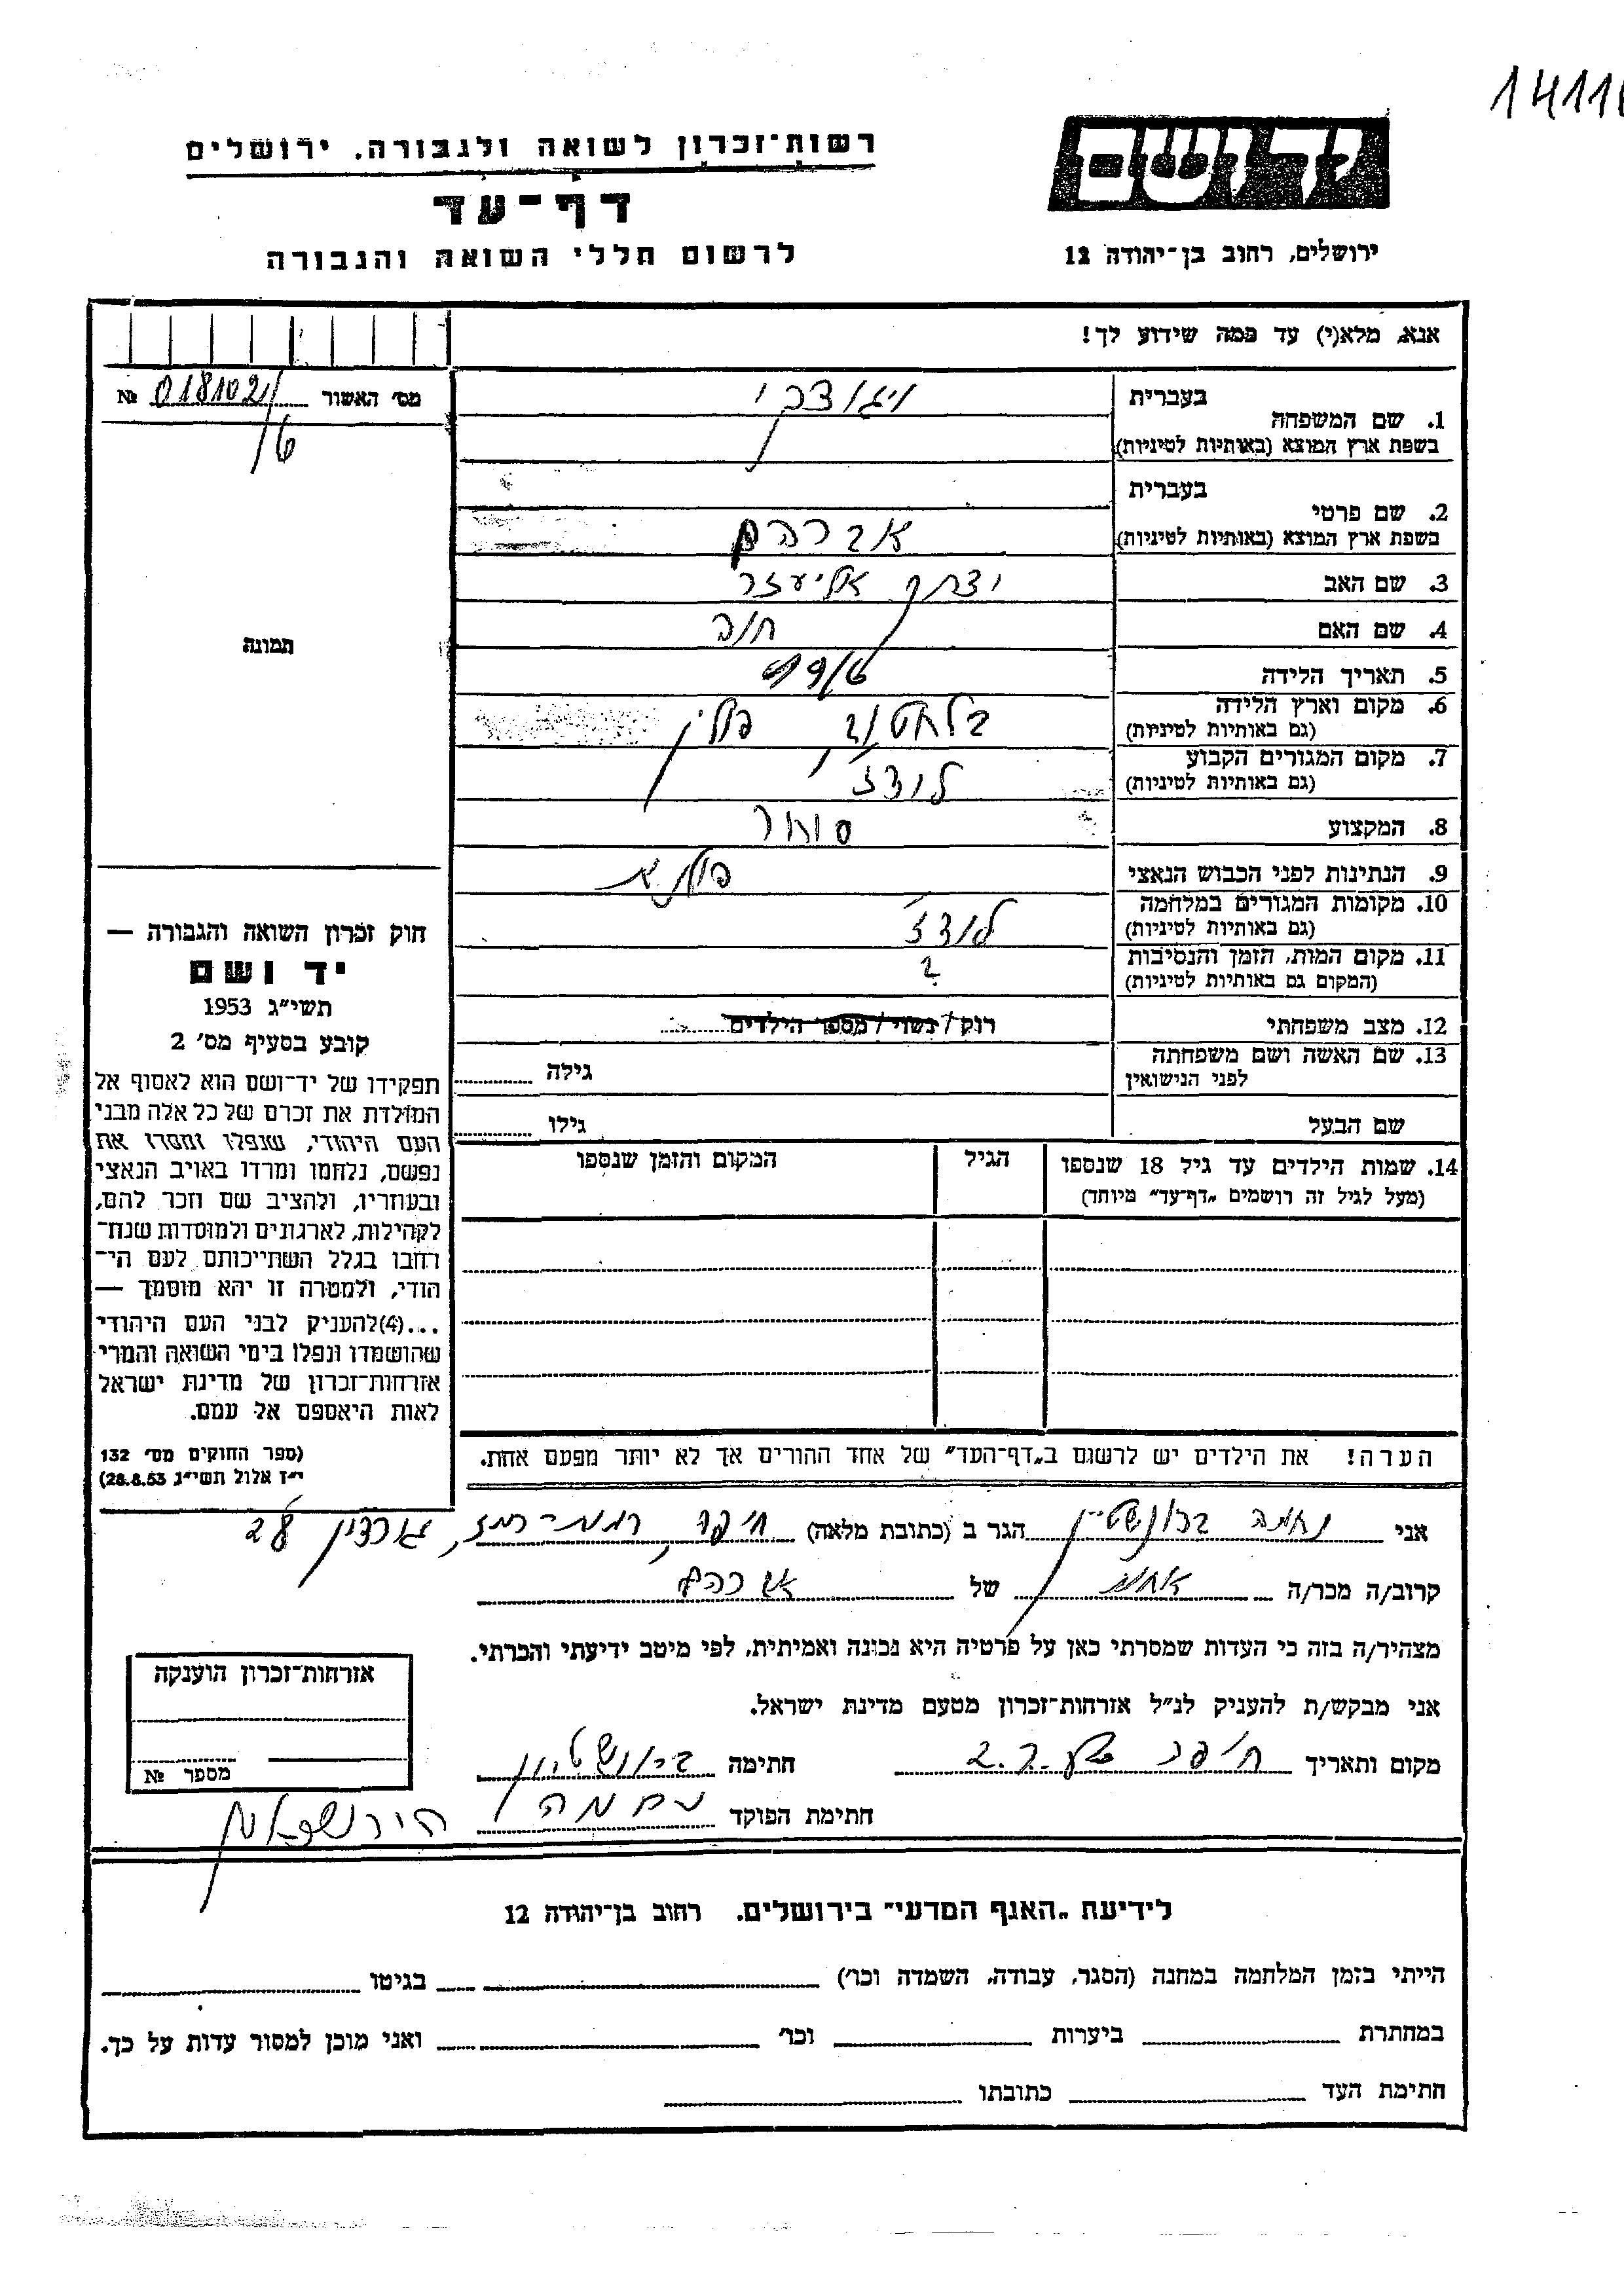 14111
רשות־זכרון לשואה ולגבורה. ירושלים
דף־עד
לרשום חללי השואה והגבורה
יד ושם
ירושלים, רחוב בן־יהודה 12
אנא, מלא(י) עד כמה שידוע לך!
מס׳ האשור № 0181021
1. שם המשפחה
בעברית
ויגודצקי
בשפת ארץ המוצא (באותיות לטיניות)
2. שם פרטי
בעברית
בשפת ארץ המוצא (באותיות לטיניות)
אברהם
3. שם האב
יצחק אליעזר
4. שם האם
חוה
5. תאריך הלידה
6. מקום וארץ הלידה
(גם באותיות לטיניות)
פולין
7. מקום המגורים הקבוע
(גם באותיות לטיניות)
לודז׳
8. המקצוע
סוחר
9. הנתינות לפני הכבוש הנאצי
10. מקומות המגורים במלחמה
(גם באותיות לטיניות)
לודז׳
11. מקום המות, הזמן והנסיבות
(המקום גם באותיות לטיניות)
?
12. מצב משפחתי
רוק / נשוי / מספר הילדים
13. שם האשה ושם משפחתה
לפני הנישואין
גילה
שם הבעל
גילו
14. שמות הילדים עד גיל 18 שנספו
(מעל לגיל זה רושמים „דף־עד״ מיוחד)
הגיל
המקום והזמן שנספו
הערה! את הילדים יש לרשום ב„דף־העד״ של אחד ההורים אך לא יותר מפעם אחת.
תמונה
חוק זכרון השואה והגבורה —
יד ושם
תשי״ג 1953
קובע בסעיף מס׳ 2
תפקידו של יד־ושם הוא לאסוף אל
המולדת את זכרם של כל אלה מבני
העם היהודי, שנפלו ומסרו את
נפשם, נלחמו ומרדו באויב הנאצי
ובעוזריו, ולהציב שם וזכר להם,
לקהילות, לארגונים ולמוסדות שנח־
רבו בגלל השתייכותם לעם הי־
הודי, ולמטרה זו יהא מוסמך —
...(4)להעניק לבני העם היהודי
שהושמדו ונפלו בימי השואה והמרי
אזרחות־זכרון של מדינת ישראל
לאות היאספם אל עמם.
(ספר החוקים מס׳ 132
י״ז אלול תשי״ג, 28.8.53)
אני נחמה ברונשטיין הגר ב (כתובת מלאה) חיפה, רמת־רמז, גורדון 28
קרוב/ה מכר/ה אחות של אברהם
מצהיר/ה בזה כי העדות שמסרתי כאן על פרטיה היא נכונה ואמיתית, לפי מיטב ידיעתי והכרתי.
אני מבקש/ת להעניק לנ״ל אזרחות־זכרון מטעם מדינת ישראל.
מקום ותאריך חיפה חתימה ברונשטיין
חתימת הפוקד נחמה
אזרחות־זכרון הוענקה
מספר №
לידיעת „האגף המדעי״ בירושלים. רחוב בן־יהודה 12
הייתי בזמן המלחמה במחנה (הסגר, עבודה, השמדה וכו׳) בגיטו
במחתרת ביערות וכו׳ ואני מוכן למסור עדות על כך.
חתימת העד כתובתו